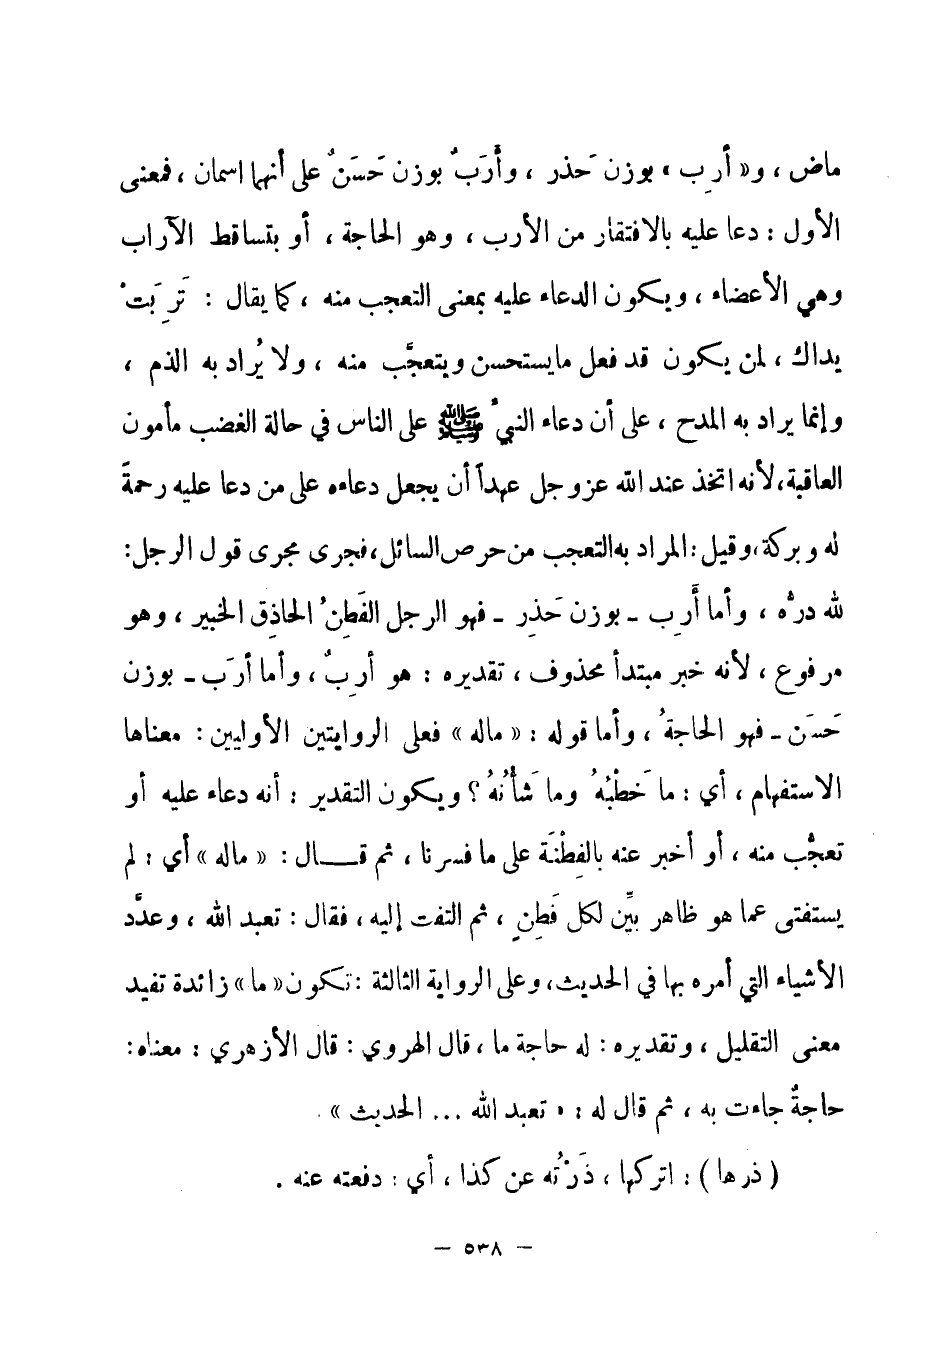 ماض ، و« أرِب » بوزن حَذر ، وأَرَبٌ بوزن حَسَنٌ على أنهما اسمان ، فمعنى
الأول : دعا عليه بالافتقار من الأرب ، وهو الحاجة ، أو بتساقط الآراب
وهي الأعضاء ، ويكون الدعاء عليه بمعنى التعجب منه ، كما يقال : تَرِبَتْ
يداك ، لمن يكون قد فعل ما يستحسن ويتعجَّب منه ، ولا يُراد به الذم ،
وإنما يراد به المدح ، على أن دعاء النبيُّ ﷺ على الناس في حالة الغضب مأمون
العاقبة، لأنه اتخذ عند الله عز وجل عهداً أن يجعل دعاءه على من دعا عليه رحمةً
له وبركة، وقيل : المراد به التعجب من حرص السائل، فجرى مجرى قول الرجل:
لله درُّه ، وأما أَرِب - بوزن حَذِر - فهو الرجل الفَطِنُ الحاذِق الخبير ، وهو
مرفوع ، لأنه خبر مبتدأ محذوف ، تقديره : هو أرِبٌ ، وأما أرَب - بوزن
حَسَن - فهو الحاجةُ ، وأما قوله : « ماله » فعلى الروايتين الأوليين : معناها
الاستفهام ، أي : ما خَطْبُهُ وما شَأْنُهُ ؟ ويكون التقدير : أنه دعاء عليه أو
تعجُّب منه ، أو أخبر عنه بالفِطْنَة على ما فسرنا ، ثم قـــال : « ماله » أي : لم
يستفتي عما هو ظاهر بيِّن لكل فَطِنٍ ، ثم التفت إليه ، فقال : تعبد الله ، وعدَّد
الأشياء التي أمره بها في الحديث، وعلى الرواية الثالثة : تكون « ما » زائدة تفيد
معنى التقليل ، وتقديره : له حاجة ما ، قال الهروي : قال الأزهري : معناه:
حاجةٌ جاءت به ، ثم قال له : « تعبد الله ... الحديث » .
( ذرها ) : اتركها ، ذَرْتُه عن كذا ، أي : دفعته عنه .
— ٥٣٨ —